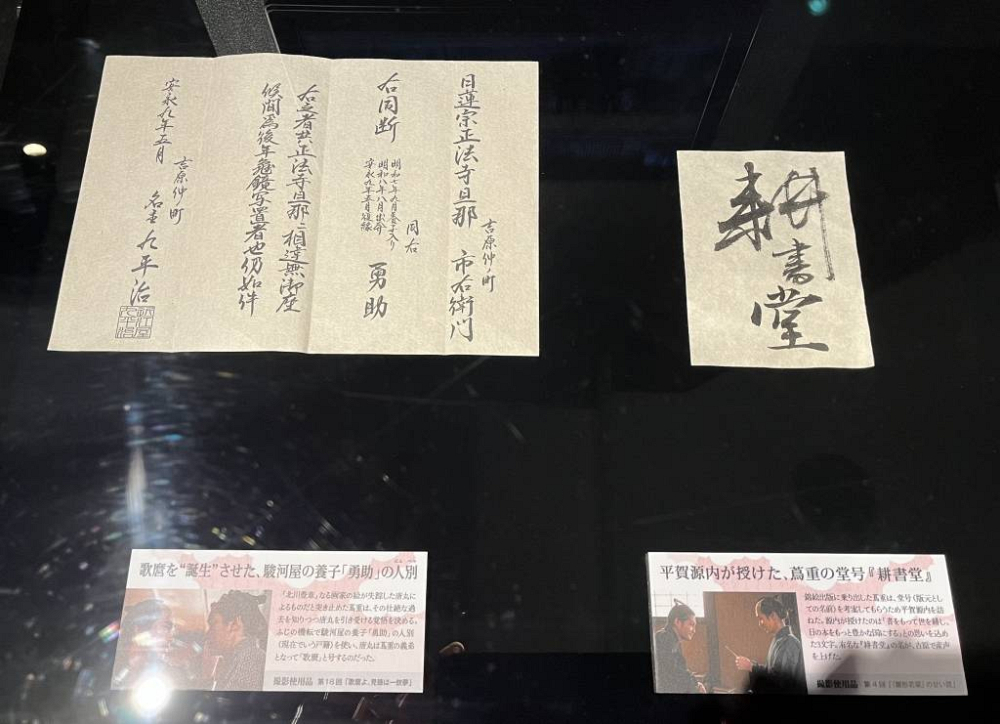 吉原仲ノ町
日蓮宗正法寺旦那 市右衛門
右同断
明和八年八月出奔
安永九年五月復縁
同右
勇助
右之者共正法寺旦那ニ相違無御座
候間為後年亀鏡写置者也仍如件
安永九年五月
吉原仲ノ町
名主 九平治
耕書堂
歌麿を“誕生”させた、駿河屋の養子「勇助」の人別
「北川豊章」なる画家の絵が失踪した唐丸に
よるものだと突き止めた蔦重は、その壮絶な過
去を知りつつ唐丸を引き受ける覚悟を決める。
ふじの機転で駿河屋の養子「勇助」の人別
（現在でいう戸籍）を使い、唐丸は蔦重の義弟
となって「歌麿」と号するのだった。
撮影使用品 第18回「歌麿よ、見徳は一炊夢」
平賀源内が授けた、蔦重の堂号『耕書堂』
錦絵出版に乗り出した蔦重は、堂号（版元とし
ての名前）を考案してもらうため平賀源内を訪
ねた。源内が授けたのは「書をもって世を耕し、
日の本をもっと豊かな国にする」との思いを込め
た3文字。有名な『耕書堂』の名が、吉原で産声
を上げた。
撮影使用品 第4回「『雛形若菜』の甘い罠」